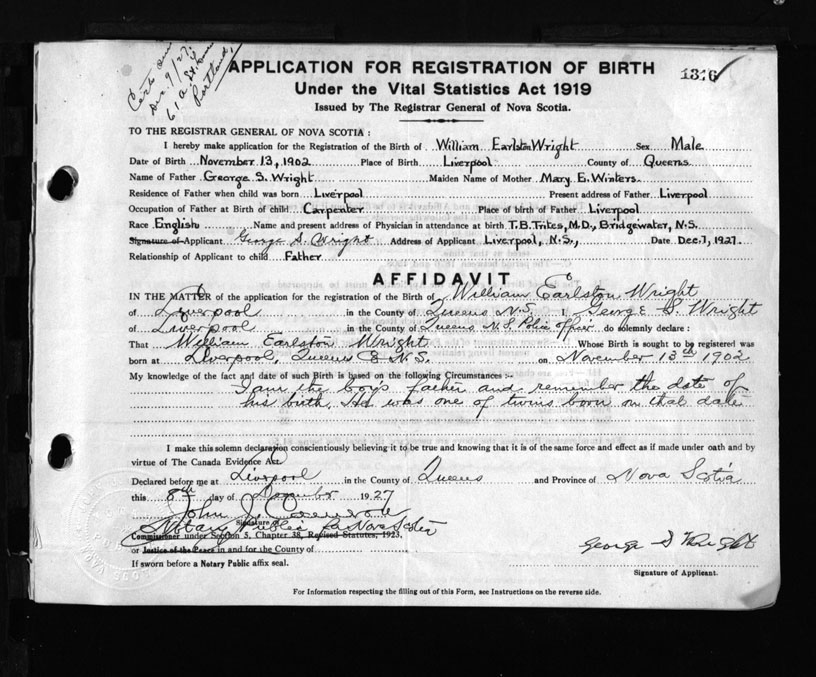 Dec. 9/27.
61 A St.
Portland,
APPLICATION FOR REGISTRATION OF BIRTH
1316
Under the Vital Statistics Act 1919
Issued by The Registrar General of Nova Scotia.
TO THE REGISTRAR GENERAL OF NOVA SCOTIA :
I hereby make application for the Registration of the Birth of William Earlston Wright Sex Male
Date of Birth November 13, 1902 Place of Birth Liverpool County of Queens
Name of Father George S. Wright Maiden Name of Mother Mary E. Winters.
Residence of Father when child was born Liverpool Present address of Father Liverpool
Occupation of Father at Birth of child Carpenter Place of birth of Father Liverpool
Race English Name and present address of Physician in attendance at birth T.B. Trites, M.D., Bridgewater, N.S.
Signature of Applicant George S. Wright Address of Applicant Liverpool, N.S., Date Dec. 7, 1927.
Relationship of Applicant to child Father
AFFIDAVIT
IN THE MATTER of the application for the registration of the Birth of William Earlston Wright
of Liverpool in the County of Queens N.S. I, George S. Wright
of Liverpool in the County of Queens N.S. Police Officer do solemnly declare :
That William Earlston Wright Whose Birth is sought to be registered was
born at Liverpool, Queens Co N.S. on November 13th 1902
My knowledge of the fact and date of such Birth is based on the following Circumstances :-
I am the boys father and remember the date of
his birth. He was one of twins born on that date
I make this solemn declaration conscientiously believing it to be true and knowing that it is of the same force and effect as if made under oath and by
virtue of The Canada Evidence Act.
Declared before me at Liverpool in the County of Queens and Province of Nova Scotia
this 8th day of December 1927
John J.
Signature of
Notary Public for Nova Scotia
Commissioner under Section 5, Chapter 38, Revised Statutes, 1923,
or Justice of the Peace in and for the County of
George S Wright
If sworn before a Notary Public affix seal.
Signature of Applicant.
For Information respecting the filling out of this Form, see Instructions on the reverse side.